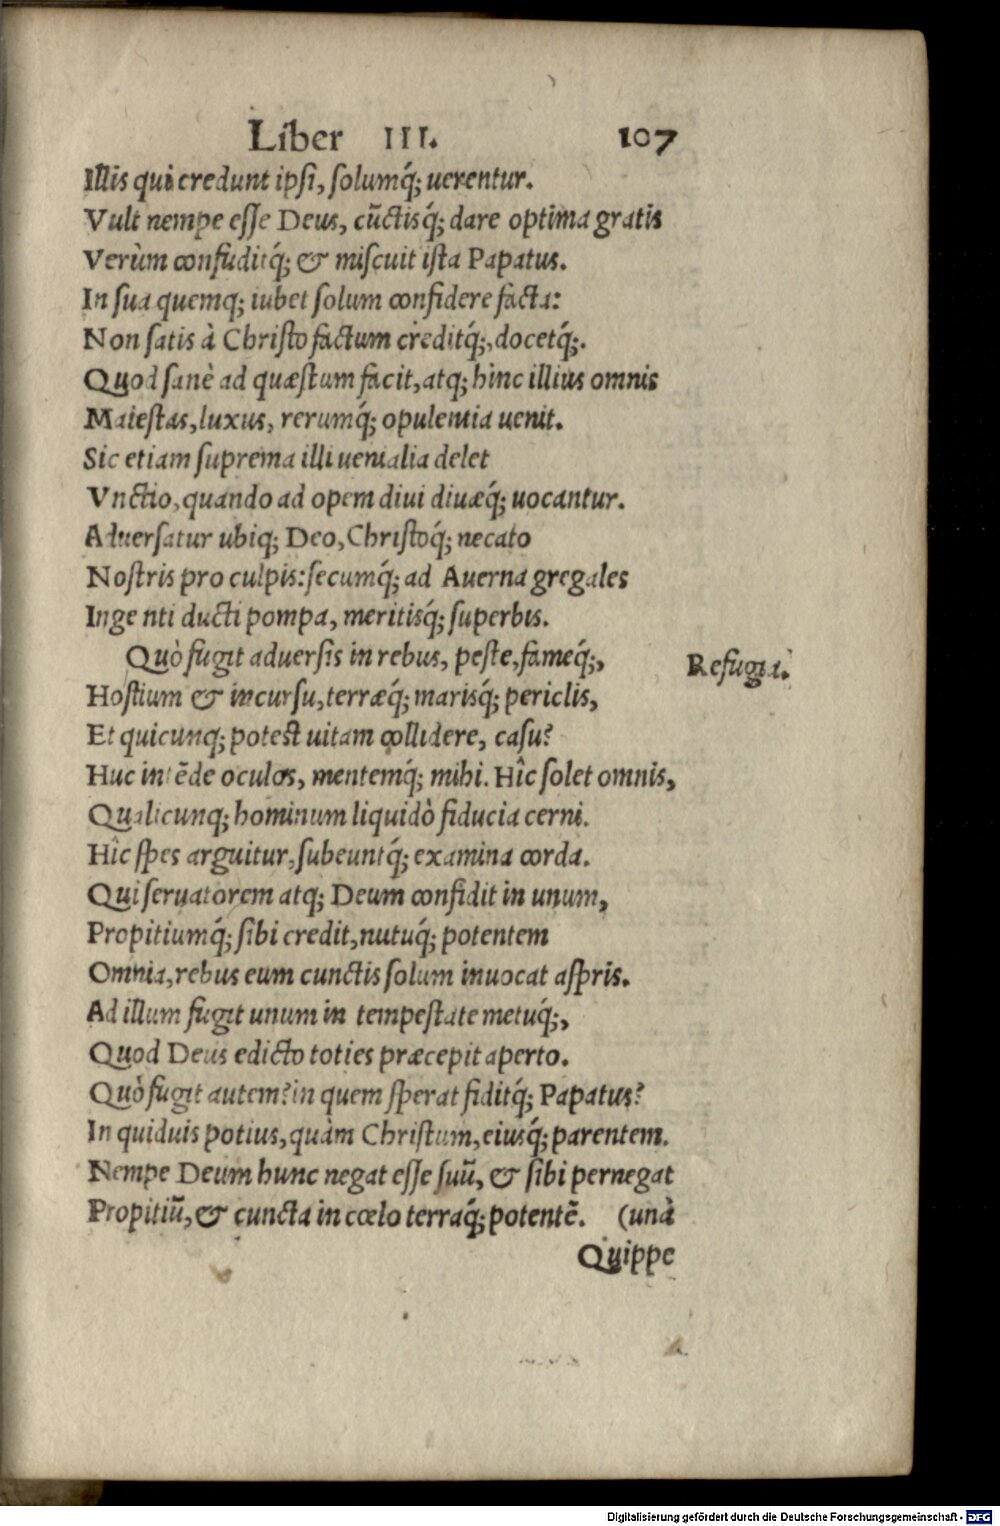 Liber III. 107
Illis qui credunt ipsi, solumq́; uerentur.
Vult nempe esse Deus, cũctisq́; dare optima gratis
Verùm confuditq́; & miscuit ista Papatus.
In sua quemq; iubet solum confidere facta:
Non satis à Christo factum creditq́;, docetq́;.
Quod sanè ad quæstum facit, atq; hinc illius omnis
Maiestas, luxus, rerumq́; opulentia uenit.
Sic etiam suprema illi uenialia delet
Vnctio, quando ad opem diui diuæq́; uocantur.
Aduersatur ubiq; Deo, Christoq́; necato
Nostris pro culpis: secumq́; ad Auerna gregales
Ingenti ducti pompa, meritisq́; superbis.
Quò fugit aduersis in rebus, peste, fameq́;,
Refugia.
Hostium & incursu, terræq́; marisq́; periclis,
Et quicunq; potest uitam collidere, casu?
Huc intẽde oculos, mentemq́; mihi. Hîc solet omnis,
Qualicunq; hominum liquidò fiducia cerni.
Hîc spes arguitur, subeuntq́; examina corda.
Qui seruatorem atq; Deum confidit in unum,
Propitiumq́; sibi credit, nutuq́; potentem
Omnia, rebus eum cunctis solum inuocat aspris.
Ad illum fugit unum in tempestate metuq́;,
Quod Deus edicto toties præcepit aperto.
Quò fugit autem? in quem sperat fiditq́; Papatus?
In quiduis potius, quàm Christum, eiusq́; parentem.
Nempe Deum hunc negat esse suũ, & sibi pernegat
Propitiũ, & cuncta in cœlo terraq́; potentẽ. (unà
Quippe
Digitalisierung gefördert durch die Deutsche Forschungsgemeinschaft - DFG